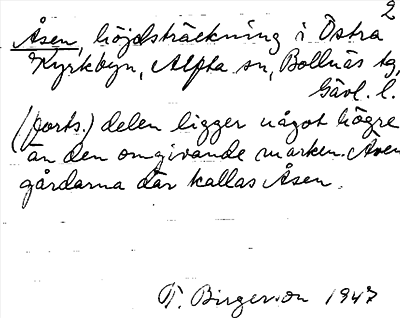 2
Åsen, höjdsträckning i Östra
Kyrkbyn, Alfta sn, Bollnäs tg,
Gävl. l.
(forts.) delen ligger något högre
än den omgivande marken. Även
gårdarna där kallas Åsen.
T. Birgerson 1947